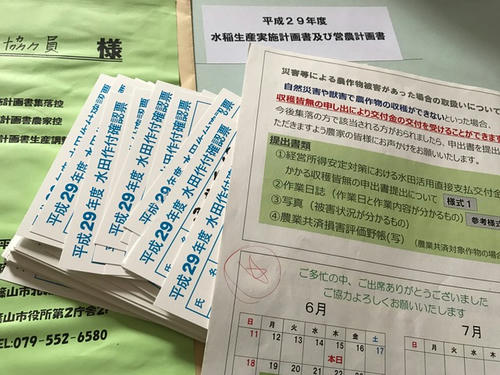 協力員 様
計画書集落控
計画書農家控
計画書生産調
篠山市北
篠山市役所第2庁舎2
TEL:079-552-6580
平成29年度
水稲生産実施計画書及び営農計画書
平成29年度 水田作付確認票
平成29年度 水田作付確認票
平成29年度 水田作付確認票
平成29年度 水田作付確認票
平成29年度 水田作付確認票
氏
災害等による農作物被害があった場合の取扱いについて
自然災害や獣害で農作物の収穫ができないといった場合、
収穫皆無の申し出により交付金の交付を受けることができます
今後集落の方で該当される方がおられましたら、申出書を提出
ただきますよう農家の皆様にお声かけをお願いいたします。
提出書類
①経営所得安定対策における水田活用直接支払交付金
かかる収穫皆無の申出書提出について
②作業日誌（作業日と作業内容が分かるもの） 様式1
③写真（被害状況が分かるもの） 参考様式
④農業共済損害評価野帳(写) （農業共済対象作物の場合
ご多忙の中、ご出席ありがとうございました
ご協力よろしくお願いいたします
6月
7月
日 月 火 水 木 金 土
日 月 火
11 12 13 14 15 16 17
本日
18